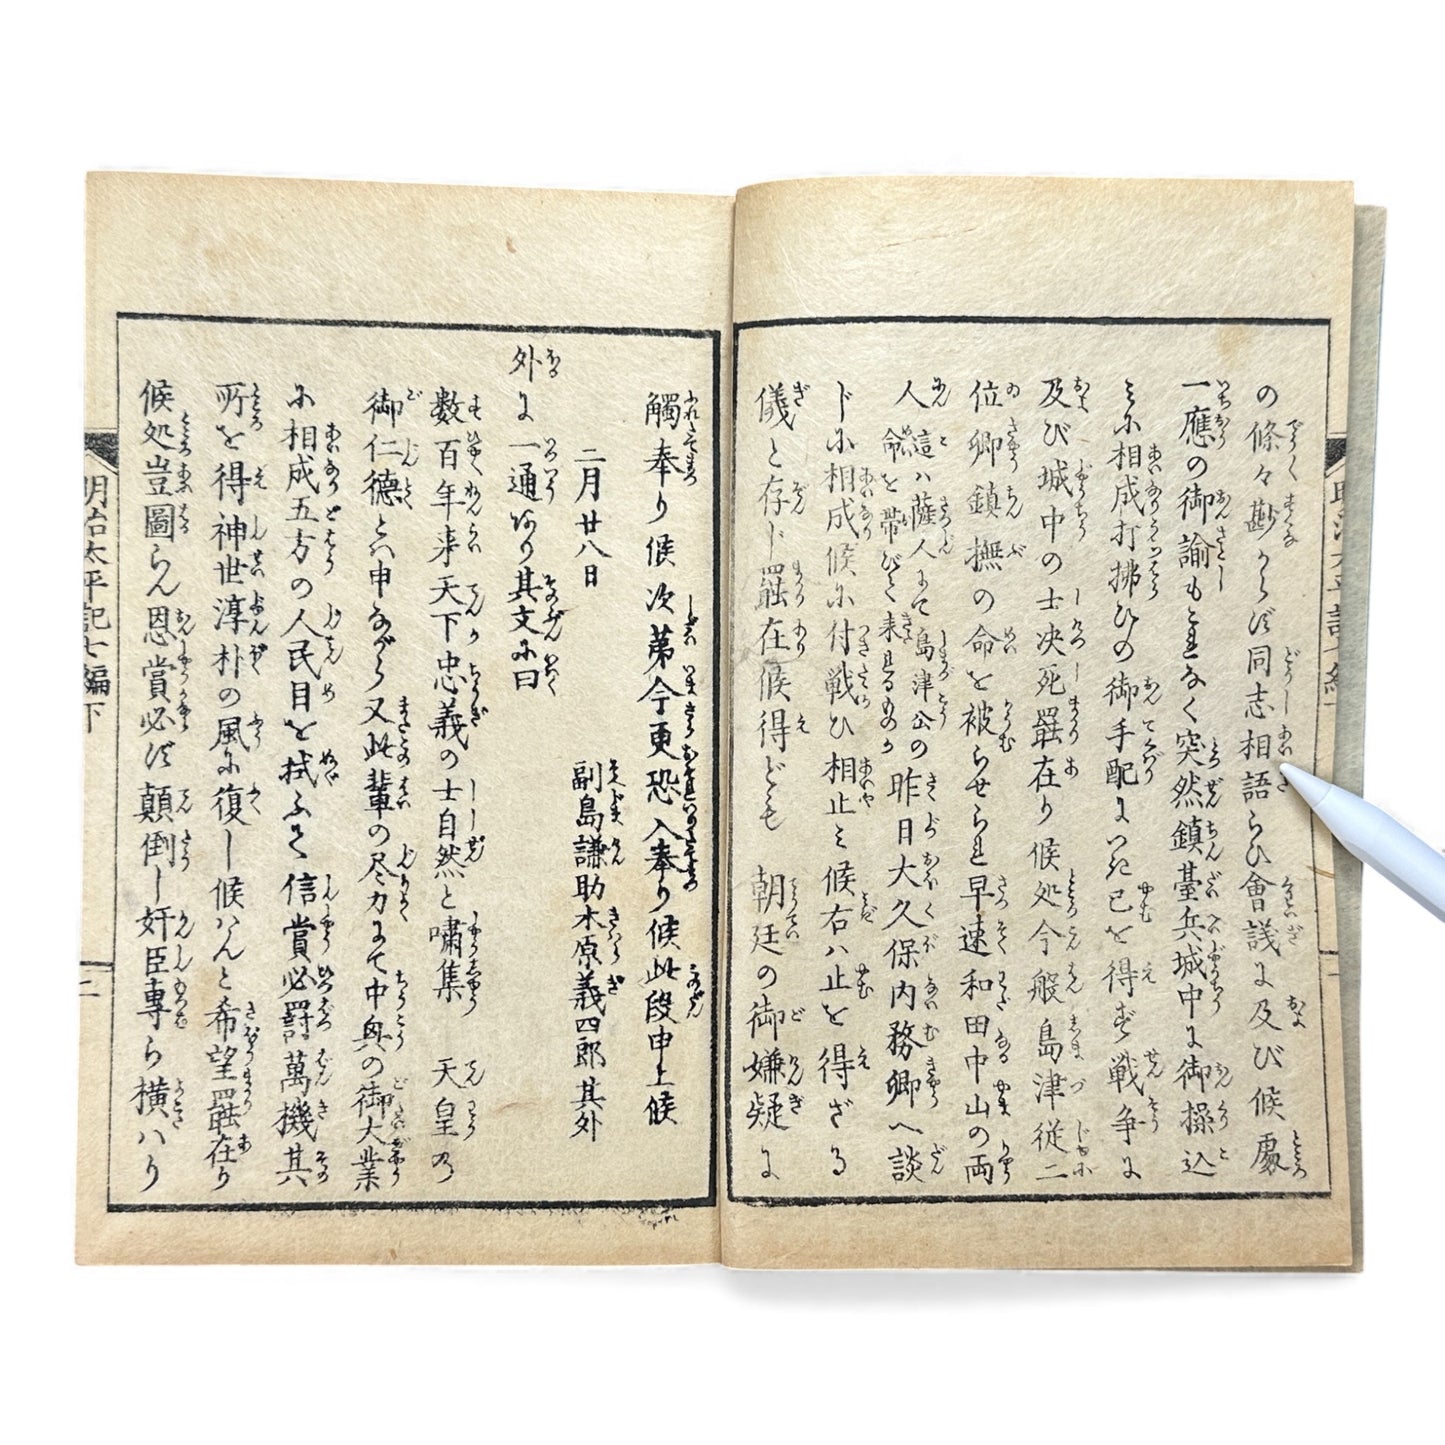 の條々勘からず同志相語らひ會議に及び候處
一應の御諭もこれなく突然鎮臺兵城中に御操込
みに相成打拂ひの御手配につき已を得ず戦争に
及び城中の士决死罷在り候処今般島津従二
位卿鎮撫の命を被らせられ早速和田中山の両
人
這ハ薩人にて島津公の
命を帯びて来るものか
昨日大久保内務卿へ談
じに相成候に付戦ひ相止ミ候右ハ止を得ざる
儀と存じ罷在候得ども 朝廷の御嫌疑に
觸奉り候次第今更恐入奉り候此段申上候
二月廿八日
副島謙助木原義四郎其外
外に一通あり其文に曰
数百年来天下忠義の士自然と嘯集 天皇の
御仁德とハ申ながら又此輩の尽力にて中興の御大業
に相成五方の人民目を拭ふて信賞必罸萬機其
所を得神世淳朴の風に復し候はんと希望罷在り
候処豈圖らん恩賞必ず顛倒し奸臣專ら横ハり
明治太平記七編下
二